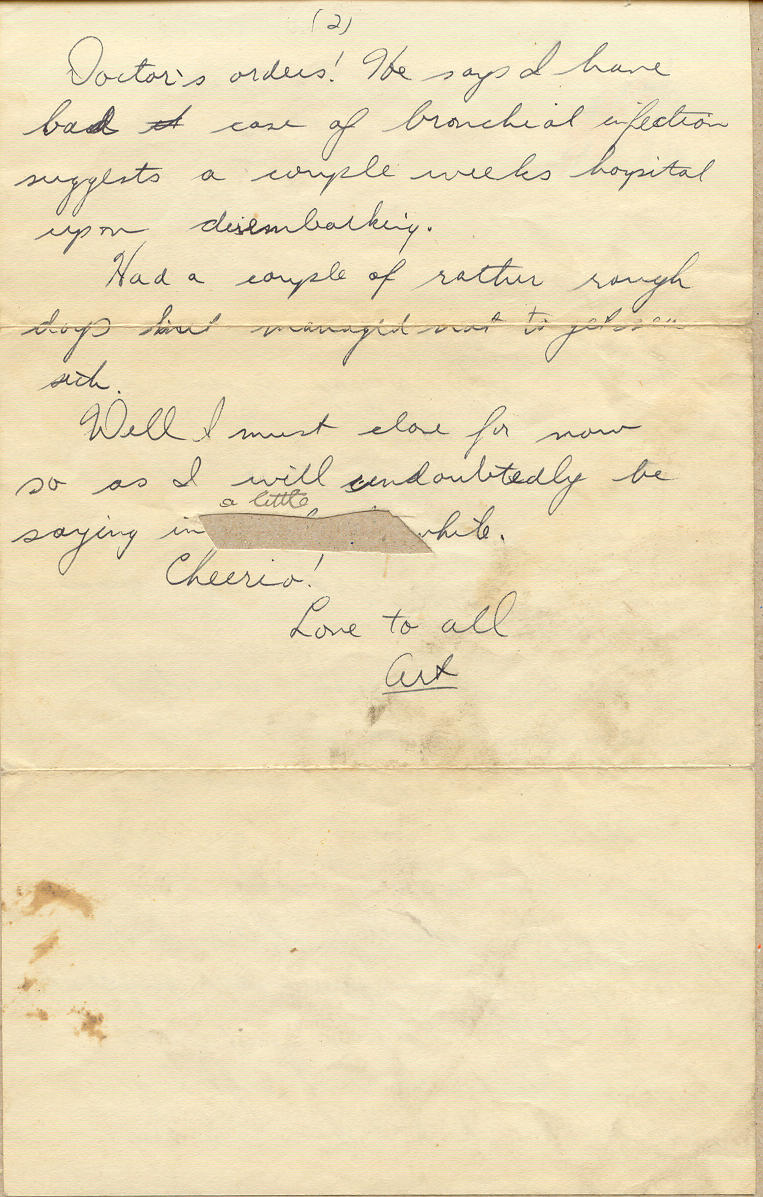 (2)
Doctor's orders! He says I have
bad case of bronchial infection
suggests a couple weeks hospital
upon disembarking.
Had a couple of rather rough
days but managed not to get sea
sick.
Well I must close for now
so as I will undoubtedly be
a little
saying in while.
Cheerio!
Love to all
Art